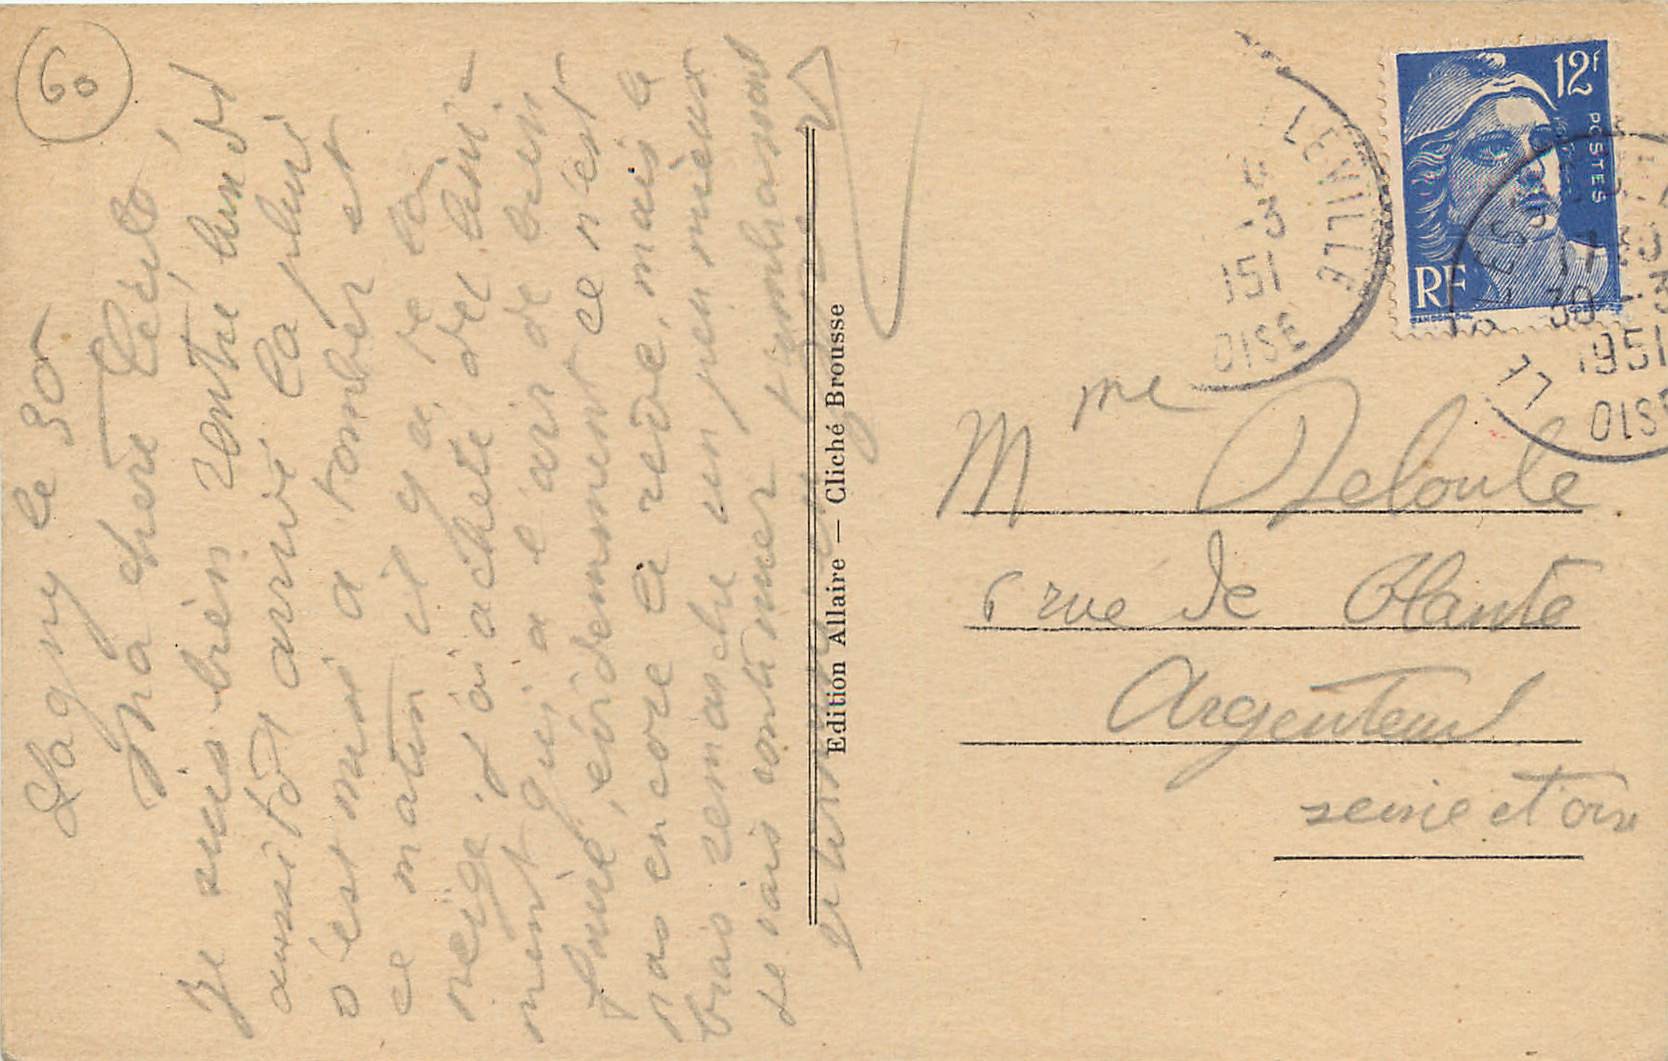 60
Lagny le 30
Ma chère Cécile
Je suis bien rentré lundi
aussitôt arrivé la pluie
s'est mis à tomber et
ce matin il y a de la
neige j'ai acheté del lini-
ment qui a l'air de bien
évidemment ce n'est
pas encore le rêve, mais le
bras remarche un peu mieux
je vais continuer
Edition Allaire — Cliché Brousse
12f
POSTES
RF
LLEVILLE
3
151
OISE
1730
30 - 3
1951
OISE
Mme Deloule
6 rue de
Argenteuil
seine et oise